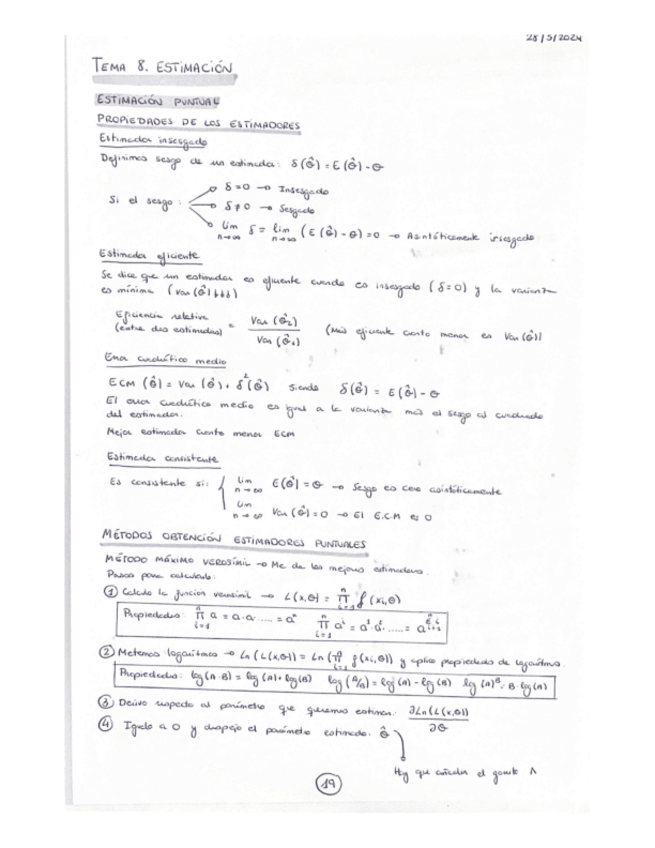 28/5/2024
TEMA 8. ESTIMACIÓN
ESTIMACIÓN PUNTUAL
PROPIEDADES DE LOS ESTIMADORES
Estimador insesgado
Definimos sesgo de un estimador: δ(θ̂) = E(θ̂) - θ
Si el sesgo:
δ = 0 → Insesgado
δ ≠ 0 → Sesgado
lim n→∞ δ = lim n→∞ (E(θ̂) - θ) = 0 → Asintóticamente insesgado
Estimador eficiente
Se dice que un estimador es eficiente cuando es insesgado (δ=0) y la varianza
es mínima (Var(θ̂)↓↓↓)
Eficiencia relativa (entre dos estimadores) = Var(θ̂₂) / Var(θ̂₁) (Más eficiente cuanto menor es Var(θ̂))
Error cuadrático medio
ECM (θ̂) = Var (θ̂) + δ²(θ̂) siendo δ(θ̂) = E(θ̂) - θ
El error cuadrático medio es igual a la varianza más el sesgo al cuadrado
del estimador.
Mejor estimador cuanto menor ECM
Estimador consistente
Es consistente si:
lim n→∞ E(θ̂) = θ → Sesgo es cero asintóticamente
lim n→∞ Var(θ̂) = 0 → El E.C.M es 0
MÉTODOS OBTENCIÓN ESTIMADORES PUNTUALES
MÉTODO MÁXIMO VEROSÍMIL → Me da los mejores estimadores.
Pasos para calcularlo:
① Calculo la función verosímil → L(x,θ) = ∏ i=1 n f(xi,θ)
Propiedades: ∏ i=1 n a = a·a·.....= aⁿ ∏ i=1 n aⁱ = a¹·a²·.....= a^(Σ i=1 n i)
② Metemos logaritmos → Ln(L(x,θ)) = Ln(∏ i=1 n f(xi,θ)) y aplico propiedades de logaritmo.
Propiedades: log(A·B) = log(A)+log(B) log(A/B) = log(A) - log(B) log(A)ᴮ = B·log(A)
③ Derivo respecto al parámetro que queremos estimar: ∂Ln(L(x,θ)) / ∂θ
④ Igualo a 0 y despejo el parámetro estimado: θ̂
Hay que añadir el gorrito ^
19